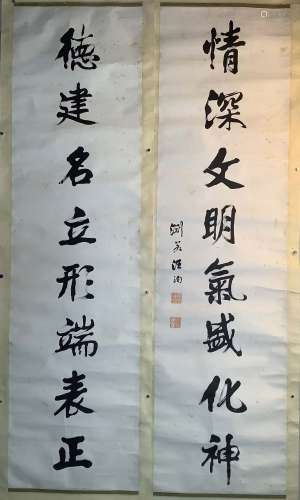 情深文明氣盛化神
德建名立形端表正